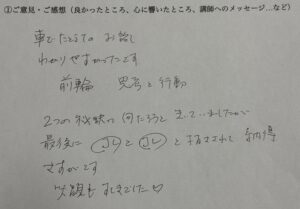 ②ご意見・ご感想(良かったところ、心に響いたところ、講師へのメッセージ…など)
車でたとえての お話し
わかりやすかったです
前輪 思考と行動
2つの秘訣は何だろうと
最後に と と 納得
さすがです
笑顔もすてきでした♡